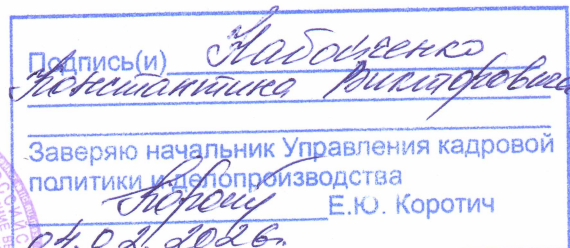 Подпись(и) Набойченко
Константина Викторовича
Заверяю начальник Управления кадровой
политики и делопроизводства
Е.Ю. Коротич
04.02.2026г.